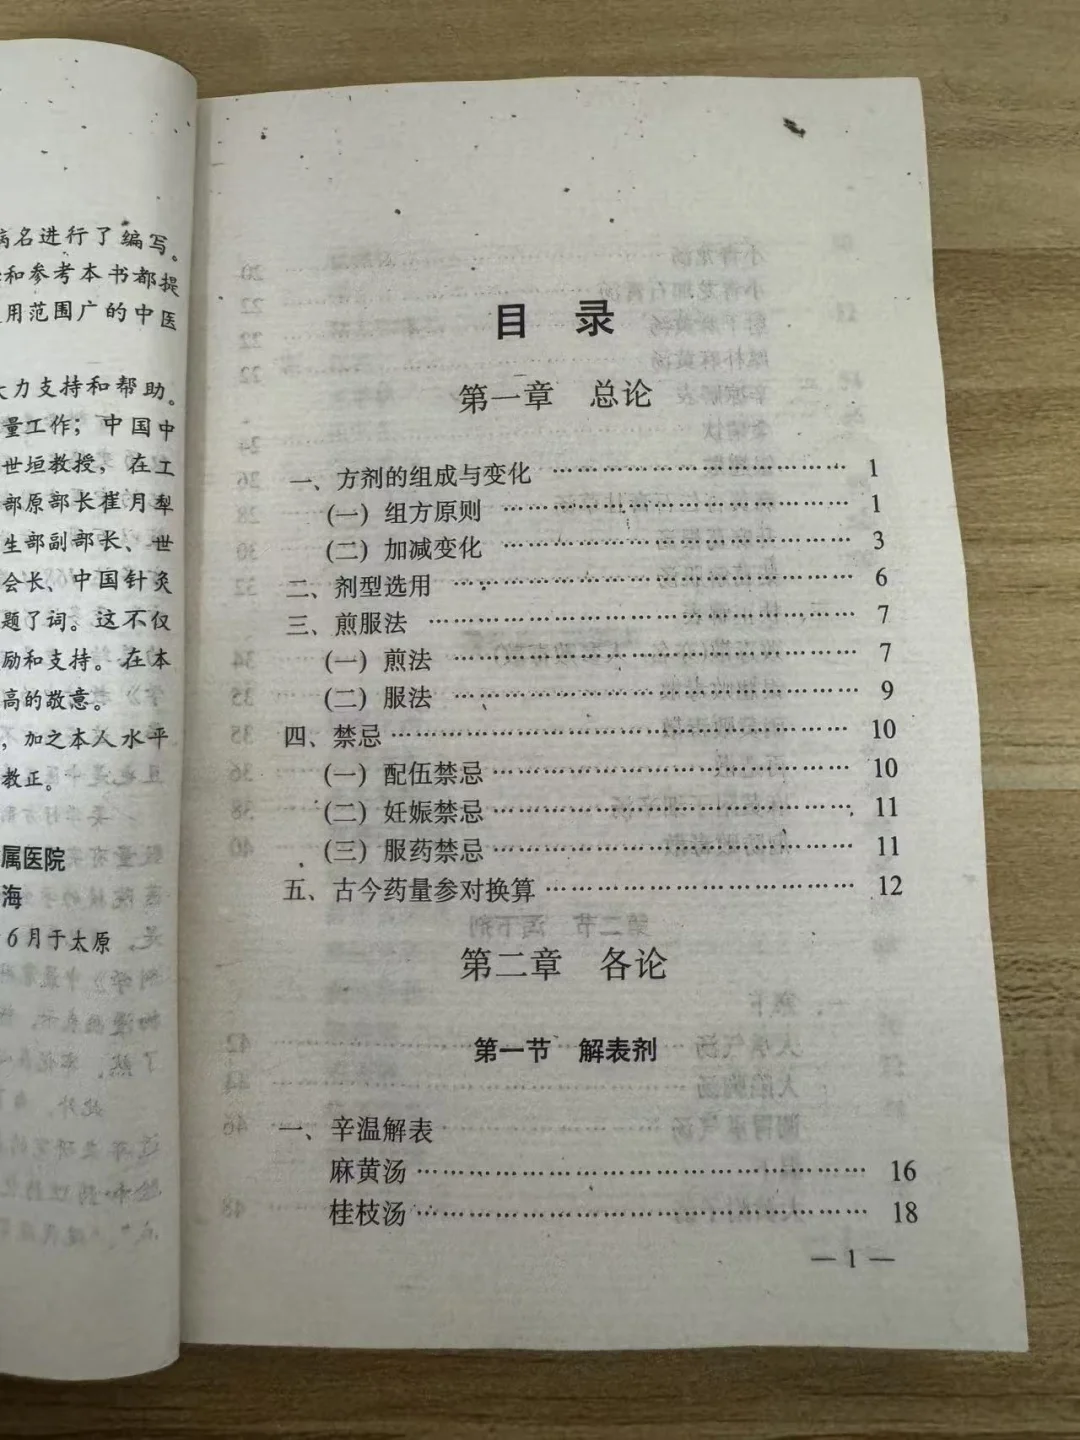 病名进行了编写。
和参考本书都提
用范围广的中医
大力支持和帮助。
量工作；中国中
世垣教授，在工
部原部长崔月犁
生部副部长、世
会长、中国针灸
题了词。这不仅
励和支持。在本
高的敬意。
，加之本人水平
教正。
属医院
海
6月于太原
目 录
第一章 总论
一、方剂的组成与变化 …………………………… 1
(一) 组方原则 …………………………… 1
(二) 加减变化 …………………………… 3
二、剂型选用 …………………………… 6
三、煎服法 …………………………… 7
(一) 煎法 …………………………… 7
(二) 服法 …………………………… 9
四、禁忌 …………………………… 10
(一) 配伍禁忌 …………………………… 10
(二) 妊娠禁忌 …………………………… 11
(三) 服药禁忌 …………………………… 11
五、古今药量参对换算 …………………………… 12
第二章 各论
第一节 解表剂
一、辛温解表
麻黄汤 …………………………… 16
桂枝汤 …………………………… 18
— 1 —